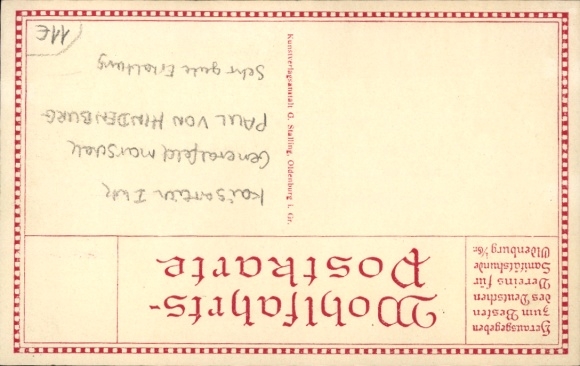 Herausgegeben
zum Besten
des Deutschen
Vereins für
Sanitätshunde
Oldenburg i/Gr.
Wohlfahrts-
Postkarte
Kunstverlagsanstalt G. Stalling, Oldenburg i. Gr.
Generalfeldmarschall
PAUL VON HINDENBURG
Sehr gute Erhaltung
11€